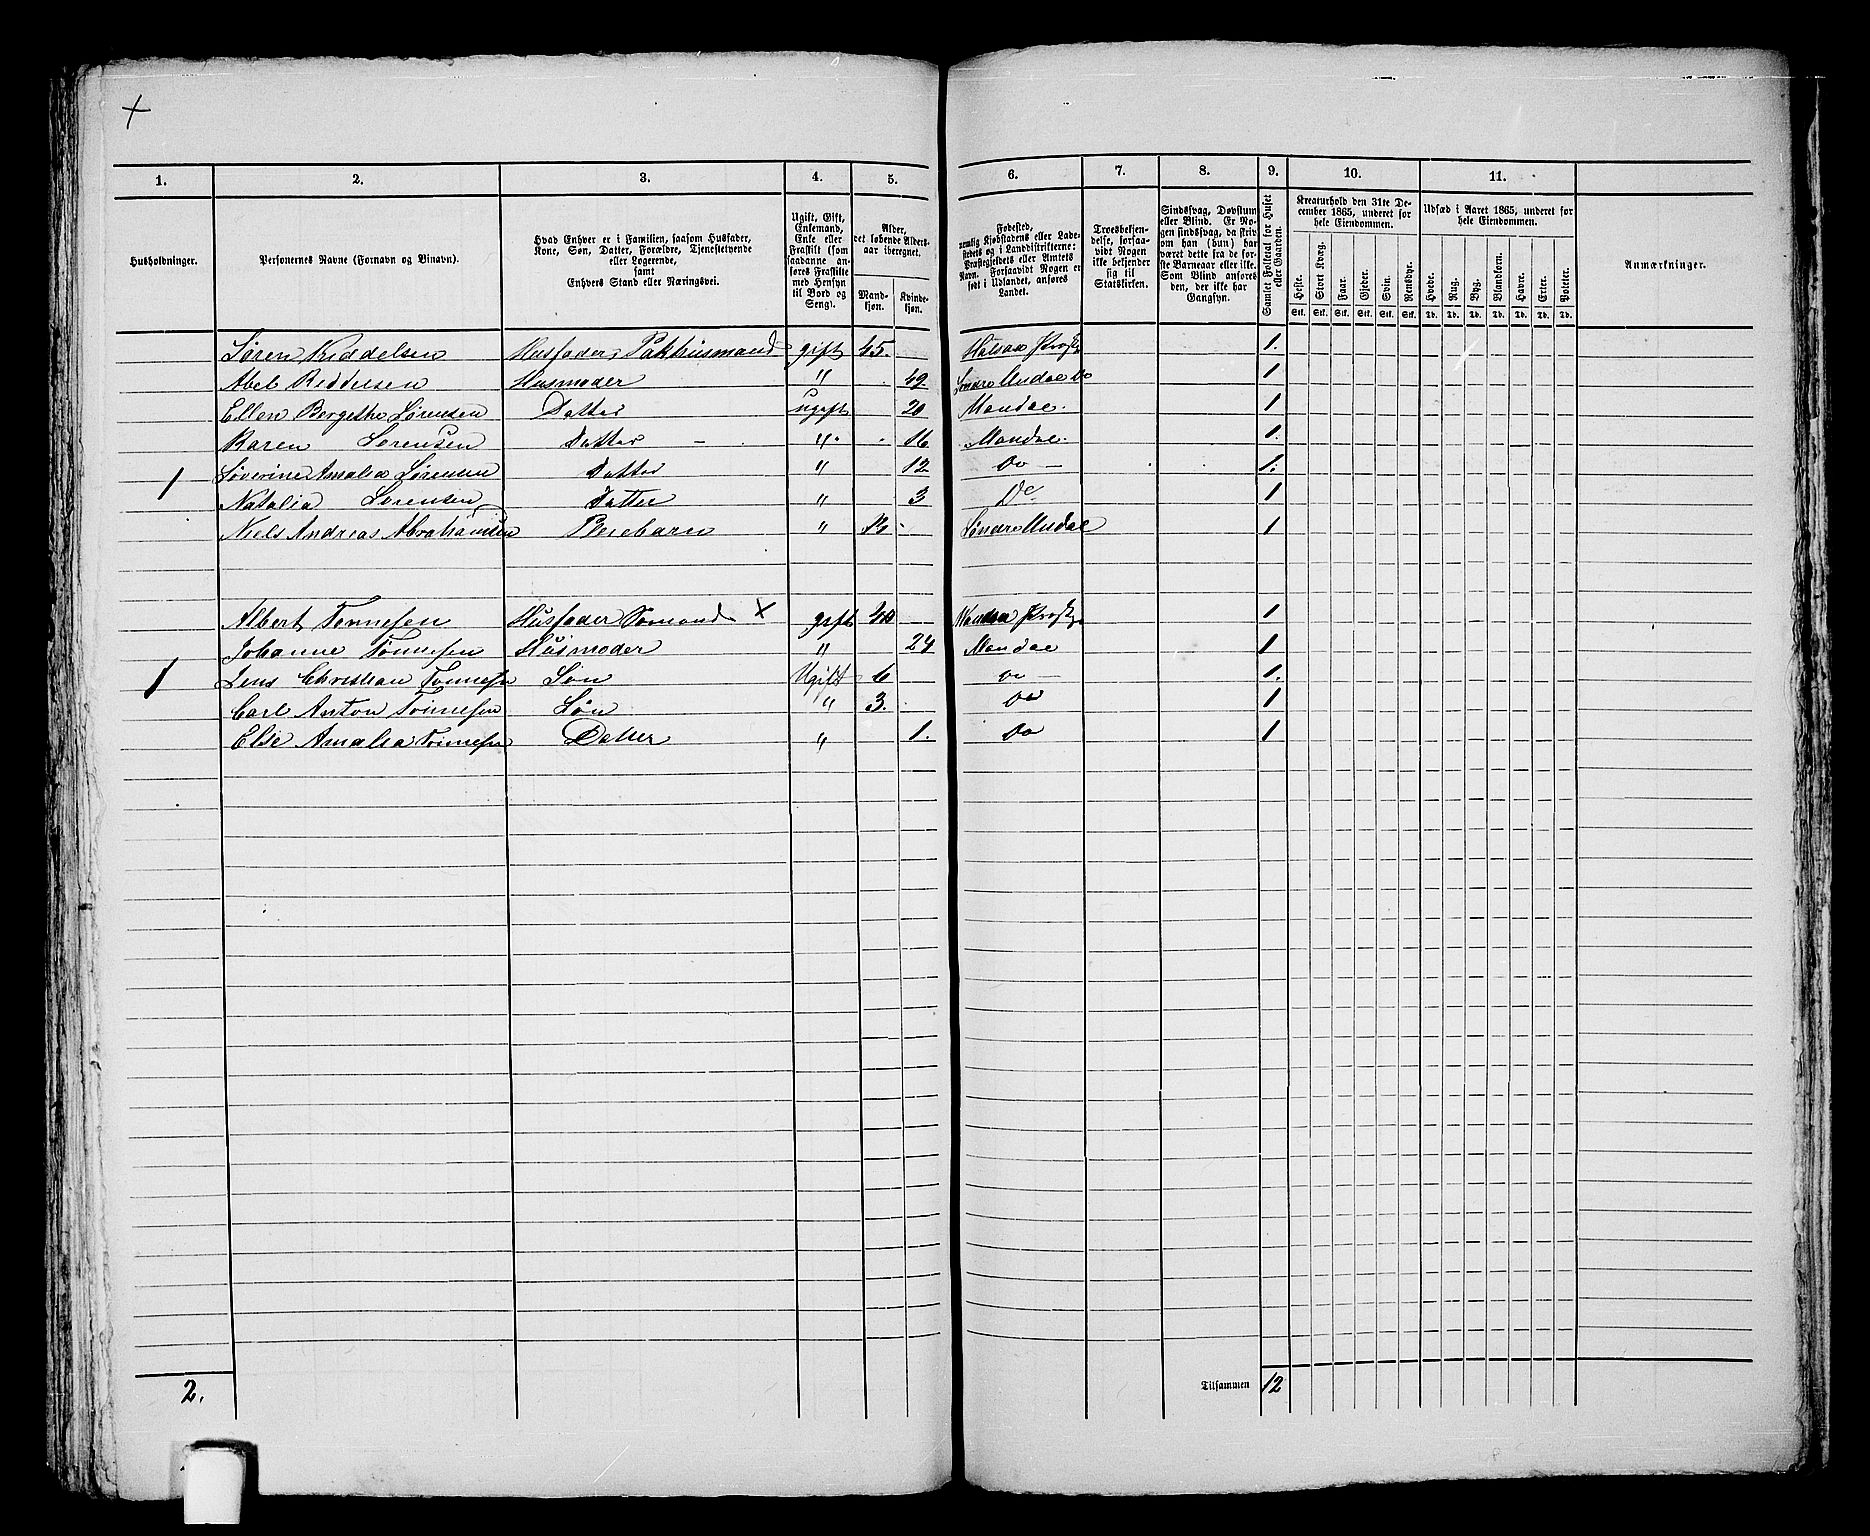 1. 2. 3. 4. 5. 6. 7. 8. 9. 10. 11.
Husholdninger.
Personernes Navne (Fornavn og Binavn).
Hvad Enhver er i Familien, saasom Husfader,
Kone, Søn, Datter, Forældre, Tjenestetyende
eller Logerende,
samt
Enhvers Stand eller Næringsvei.
Ugift, Gift,
Enkemand,
Enke eller
Fraskilt (som
saadanne an-
føres Fraskilte
med Hensyn
til Bord og
Seng).
Alder,
det løbende Alders-
aar iberegnet.
Mand-
kjøn.
Kvinde-
kjøn.
Fødested,
nemlig Kjøbstadens eller Lade-
stedets og i Landdistrikterne:
Præstegjeldets eller Amtets
Navn. Forsaavidt Nogen er
født i Udlandet, anføres
Landet.
Troesbekjen-
delse, forsaa-
vidt Nogen
ikke bekjender
sig til
Statskirken.
Sindssvag, Døvstum
eller Blind. Er No-
gen sindssvag, da skriv
om han (hun) har
været dette fra de før-
ste Barneaar eller ikke.
Som Blind anføres
den, der ikke har
Gangsyn.
Samlet Folketal for Huset
eller Gaarden.
Kreaturhold den 31te De-
cember 1865, underet for
hele Eiendommen.
Heste. Stort Kvæg. Faar. Gjeder. Svin. Rensdyr.
Stk. Stk. Stk. Stk. Stk. Stk.
Udsæd i Aaret 1865, underet for
hele Eiendommen.
Hvede. Rug. Byg. Blandkorn. Havre. Erter. Poteter.
Td. Td. Td. Td. Td. Td. Td.
Anmærkninger.
Søren Kiddelsen Husfader, Pakhusmand gift 45. 1.
Abel Kiddelsen Husmoder " 49 Søndre Undal Do 1
Ellen Bergethe Sørensen Datter ugift 20 Mandal. 1
Karen Sørensen Datter - " 16 Mandal. 1.
1 Severine Amalia Sørensen Datter " 12 Do - 1.
Natalia Sørensen Datter " 3 Do 1
Niels Andreas Abrahamsen Pleiebarn " 13 - Søndre Undal 1
Albert Tønnesen Husfader Sømand × gift 1
Johanne Tønnesen Husmoder " 24 Mandal 1
1 Jens Christian Tønnesen Søn Ugift 6 Do - 1.
Carl Anton Tønnesen Søn " 3. Do 1
Else Amalia Tønnesen Datter " 1. Do 1
2. Tilsammen 12